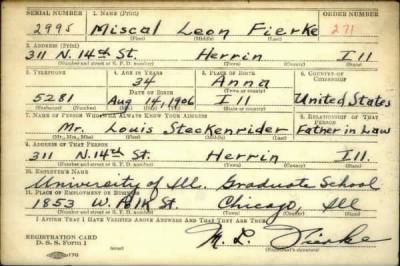 SERIAL NUMBER 1. NAME (Print) ORDER NUMBER
2995 Miscal Leon Fierke 271
(First) (Middle) (Last)
2. ADDRESS (Print)
311 N. 14th St. Herrin Ill
(Number and street or R. F. D. number) (Town) (County) (State)
3. TELEPHONE 4. AGE IN YEARS 5. PLACE OF BIRTH 6. COUNTRY OF CITIZENSHIP
34 Anna
DATE OF BIRTH (Town or county)
5281 Aug 14, 1906 Ill United States
(Exchange) (Number) (Mo.) (Day) (Yr.) (State or country)
7. NAME OF PERSON WHO WILL ALWAYS KNOW YOUR ADDRESS 8. RELATIONSHIP OF THAT PERSON
Mr. Louis Steckenrider Father in Law
(Mr., Mrs., Miss) (First) (Middle) (Last)
9. ADDRESS OF THAT PERSON
311 N. 14th St. Herrin Ill.
(Number and street or R. F. D. number) (Town) (County) (State)
10. EMPLOYER'S NAME
University of Ill. Graduate School
11. PLACE OF EMPLOYMENT OR BUSINESS
1853 W. Polk St. Chicago, Ill
(Number and street or R. F. D. number) (Town) (County) (State)
I AFFIRM THAT I HAVE VERIFIED ABOVE ANSWERS AND THAT THEY ARE TRUE.
REGISTRATION CARD
D. S. S. Form 1 M. L. Fierke
(Registrant's signature)